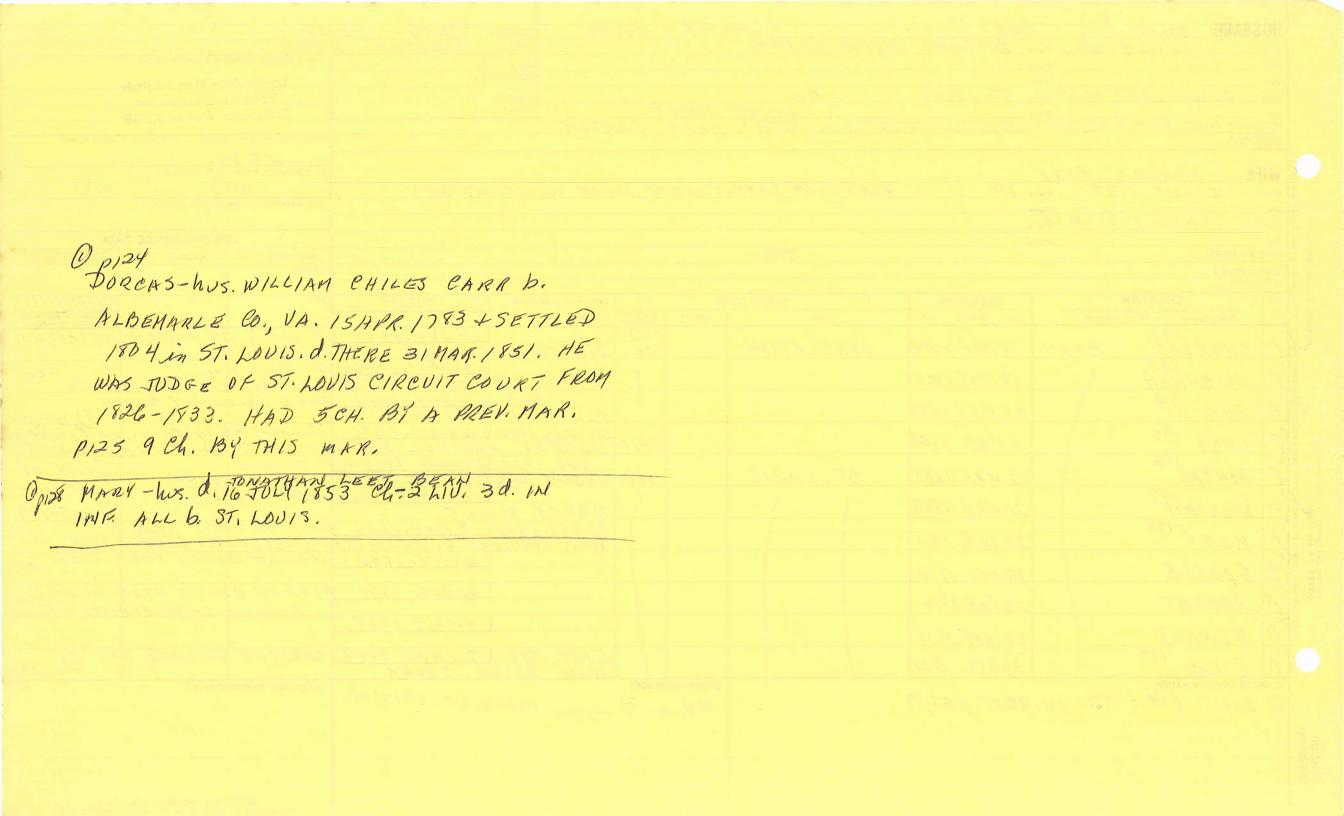 ① p124
DORCAS-hus. WILLIAM CHILES CARR b.
ALBEMARLE CO., VA. 15 APR. 1783 & SETTLED
1804 in ST. LOUIS. d. THERE 31 MAR. 1851. HE
WAS JUDGE OF ST. LOUIS CIRCUIT COURT FROM
1826-1833. HAD 5 CH. BY A PREV. MAR.
P125 9 Ch. BY THIS MAR.
JONATHAN LEET BEAN
p128 MARY-hus. d. 16 JULY 1853 Ch-2 LIV. 3 d. IN
INF. ALL b. ST. LOUIS.